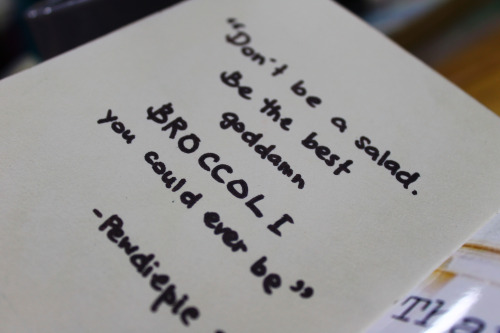 "Don't be a salad.
Be the best
goddamn
BROCCOLI
you could ever be"
-Pewdiepie
Tha